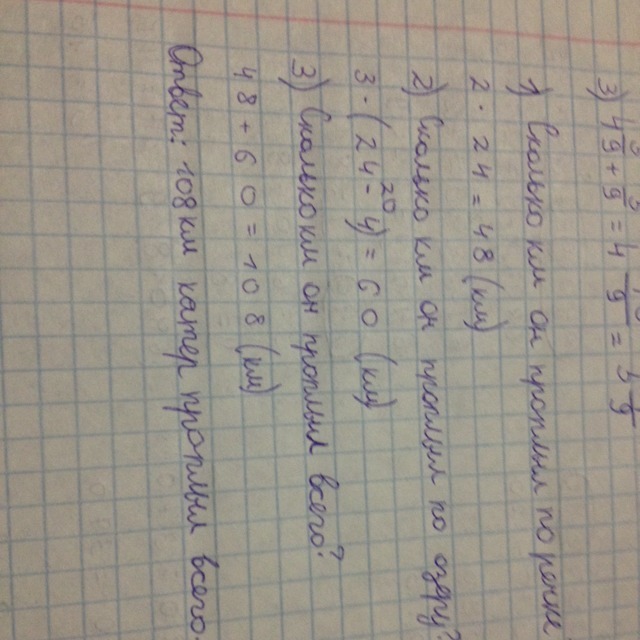 3) 4 5/9 + 5/9 = 4 10/9 = 5 1/9
1) Сколько км он прошёл по реке
2 · 24 = 48 (км)
2) Сколько км он прошёл по озеру?
20
3 · (24 - 4) = 60 (км)
3) Сколько км он прошёл всего?
48 + 60 = 108 (км)
Ответ: 108 км катер прошёл всего.